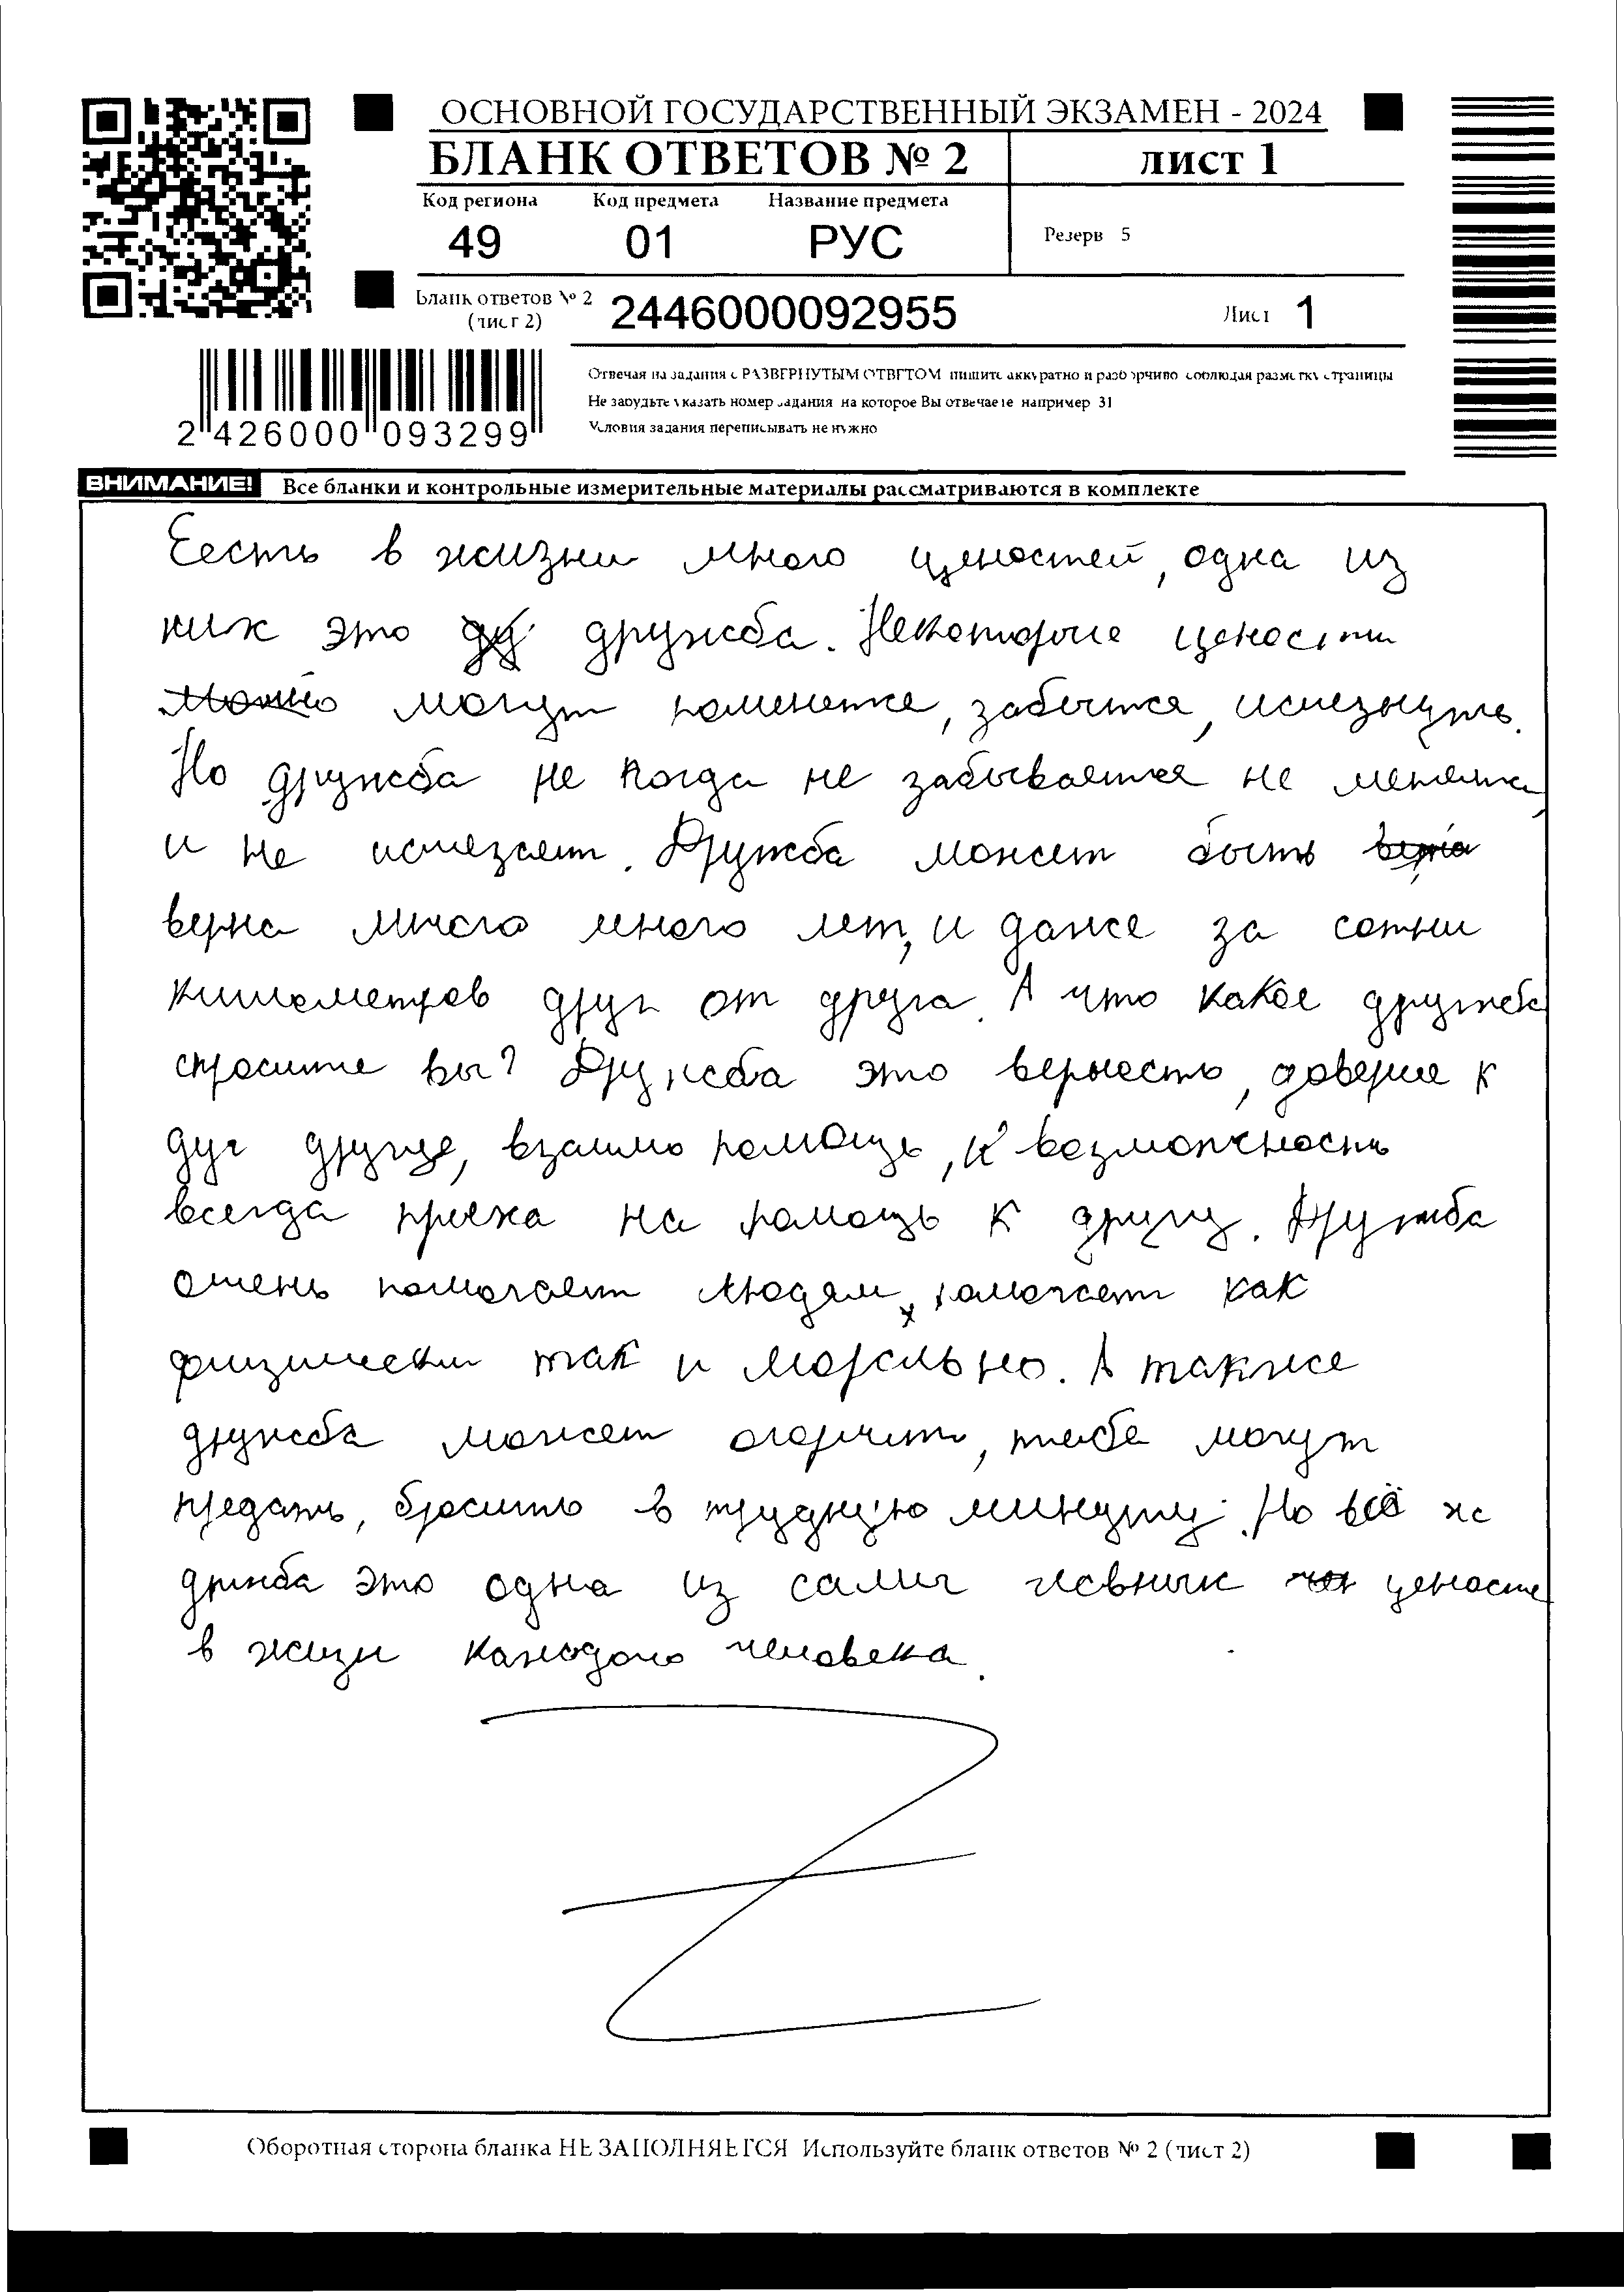 ОСНОВНОЙ ГОСУДАРСТВЕННЫЙ ЭКЗАМЕН - 2024
БЛАНК ОТВЕТОВ № 2
лист 1
Код региона Код предмета Название предмета
49 01 РУС
Резерв 5
Бланк ответов № 2 (лист 2) 2446000092955 Лист 1
Отвечая на задания с РАЗВЕРНУТЫМ ОТВЕТОМ пишите аккуратно и разборчиво соблюдая разметку страницы
Не забудьте указать номер задания на которое Вы отвечаете например 31
Условия задания переписывать не нужно
2 426000 093299
ВНИМАНИЕ! Все бланки и контрольные измерительные материалы рассматриваются в комплекте
Есеть в жизни много ценостей, одна из
них это дружба. Некоторые цености
могут поменятся, забытся, исчезнуть.
Но дружба не когда не забывается не менятся,
и не исчезает. Дружба может быть
верна много много лет, и даже за сотни
километров друг от друга. А что какое дружба
спросите вы? Дружба это верность, доверие к
дуг другу, взаимо помощь, и возможность
всегда приеха на помощь к другу. Дружба
очень помогает людям, помогает как
физически так и морально. А также
дружба может огорчит, тебе могут
предать, бросить в трудную минуту. Но всё же
држба это одна из самых главных ценосте
в жизи каждого человека.
Оборотная сторона бланка НЕ ЗАПОЛНЯЕТСЯ Используйте бланк ответов № 2 (лист 2)